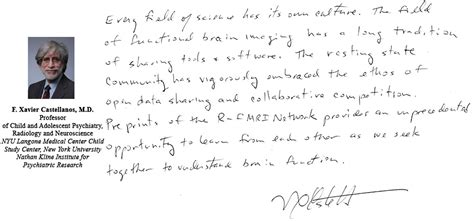 Every field of science has its own culture. The field
of functional brain imaging has a long tradition
of sharing tools & software. The resting state
community has vigorously embraced the ethos of
open data sharing and collaborative competition.
Preprints of the R-FMRI Network provides an unprecedented
opportunity to learn from each other as we seek
together to understand brain function.
F. Xavier Castellanos, M.D.
Professor
of Child and Adolescent Psychiatry,
Radiology and Neuroscience
NYU Langone Medical Center Child
Study Center, New York University
Nathan Kline Institute for
Psychiatric Research